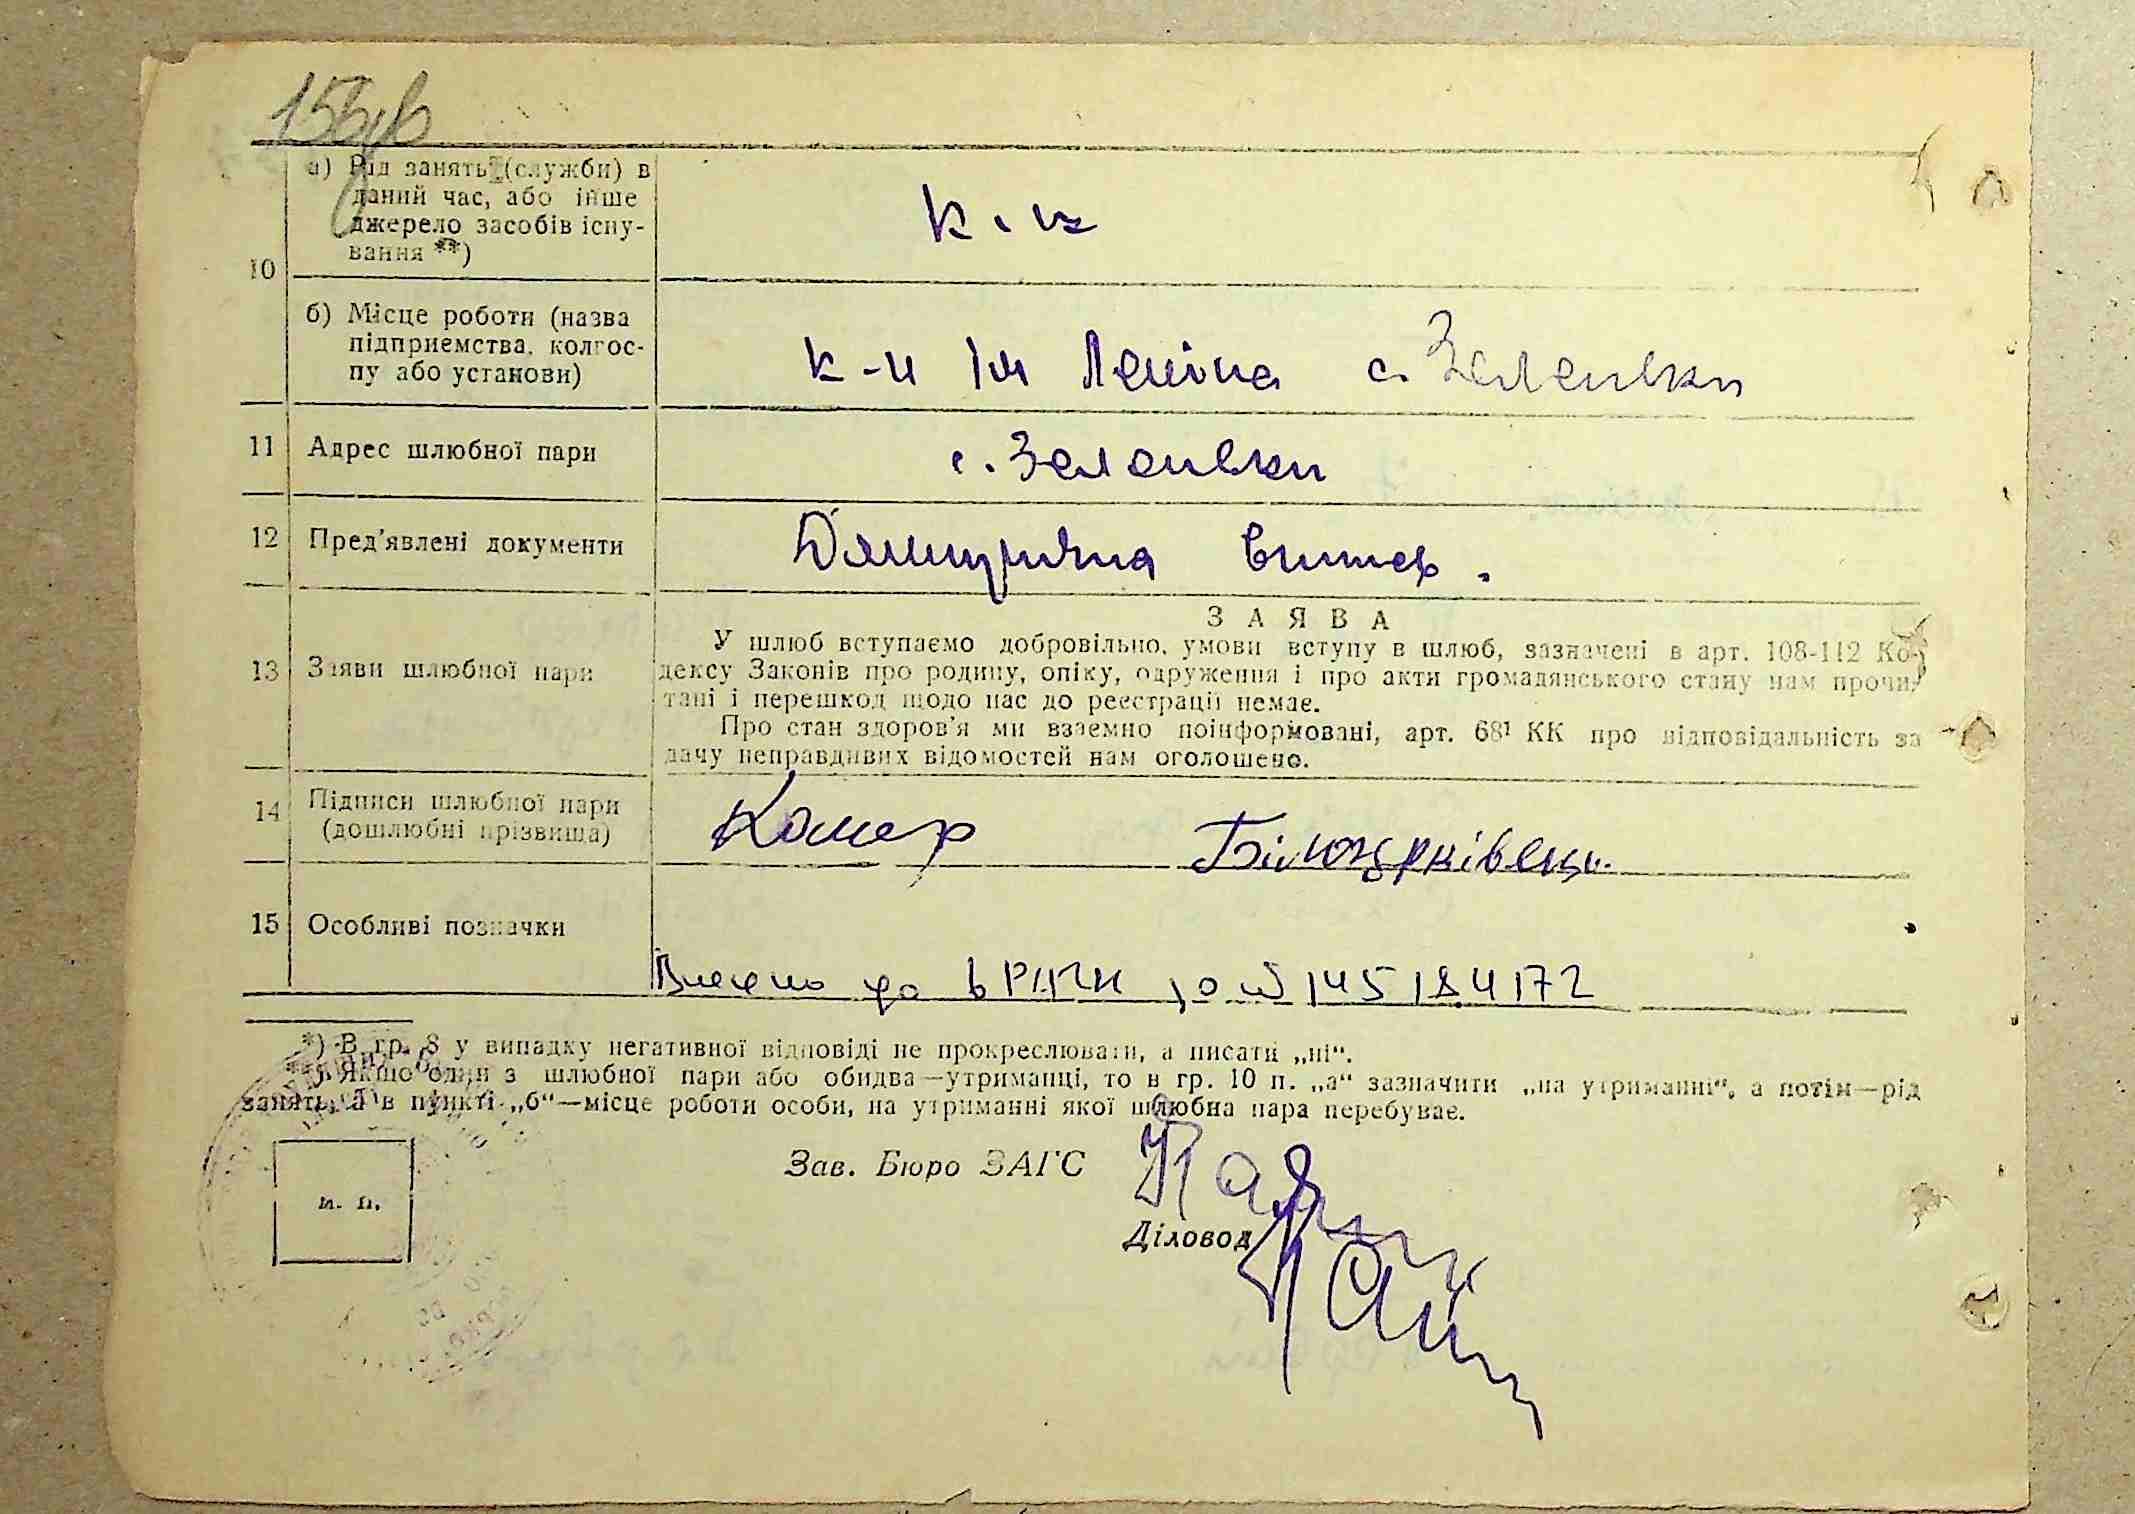 156зв
а) Рід занять (служби) в
даний час, або інше
джерело засобів існу-
вання **)
к-ц
10
б) Місце роботи (назва
підприємства, колгос-
пу або установи)
к-п ім Леніна с. Зеленьки
11 Адрес шлюбної пари с. Зеленьки
12 Пред'явлені документи
13 Заяви шлюбної пари
ЗАЯВА
У шлюб вступаємо добровільно, умови вступу в шлюб, зазначені в арт. 108-112 Ко-
дексу Законів про родину, опіку, одруження і про акти громадянського стану нам прочи-
тані і перешкод щодо нас до реєстрації немає.
Про стан здоров'я ми взаємно поінформовані, арт. 68¹ КК про відповідальність за
дачу неправдивих відомостей нам оголошено.
14 Підписи шлюбної пари
(дошлюбні прізвища)
Білоцерківець
15 Особливі позначки
Внесено до ДРАЦС 145184172
*) В гр. 8 у випадку негативної відповіді не прокреслювати, а писати „ні“.
**) Якщо один з шлюбної пари або обидва—утриманці, то в гр. 10 п. „а“ зазначити „на утриманні“, а потім—рід
занять, а в пункті „б“—місце роботи особи, на утриманні якої шлюбна пара перебуває.
Зав. Бюро ЗАГС
м. п.
Діловод